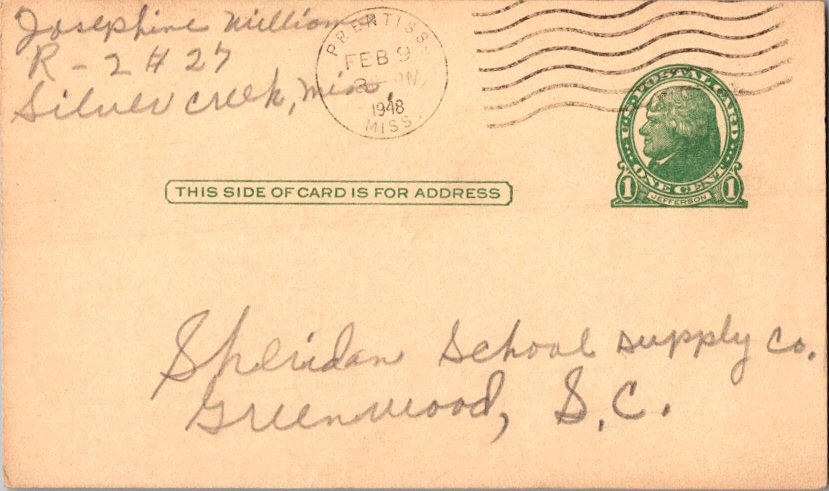 Josephine Williams
R - 2 # 27
Silver creek, Miss.
PRENTISS
FEB 9
PM
1948
MISS.
U.S. POSTAL CARD
ONE CENT
1 JEFFERSON 1
THIS SIDE OF CARD IS FOR ADDRESS
Sheridan School supply Co.
Greenwood, S.C.